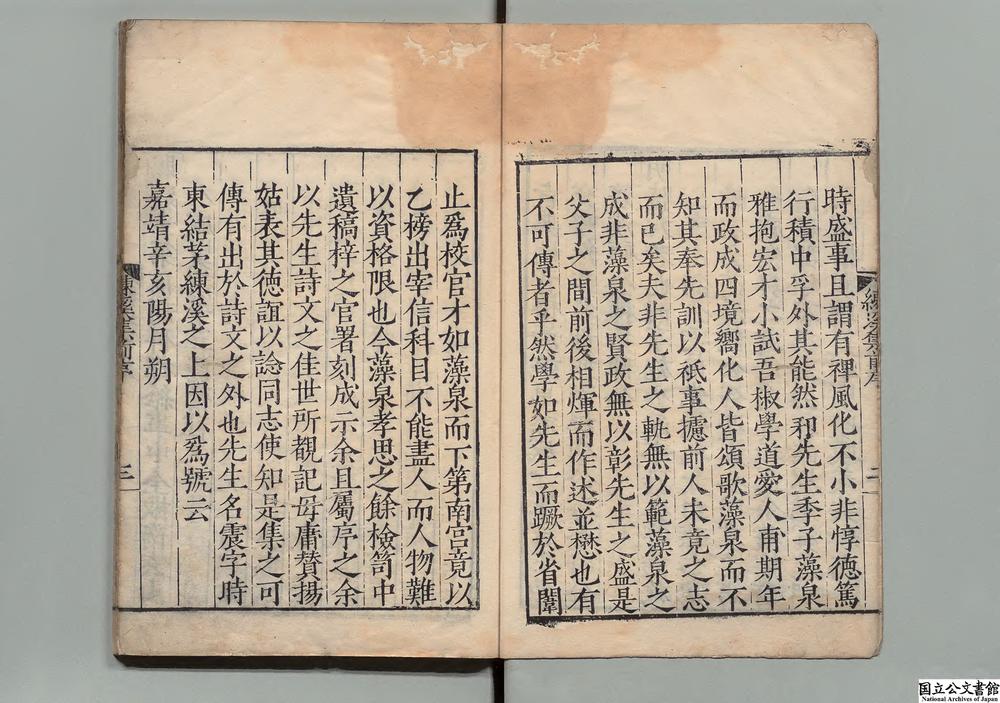 時盛事且謂有裨風化不小非惇德篤
行積中孚外其能然和先生季子藻泉
雅抱宏才小試吾椒學道愛人甫期年
而政成四境嚮化人皆頌歌藻泉而不
知其奉先訓以祇事攄前人未竟之志
而已矣夫非先生之軌無以範藻泉之
成非藻泉之賢政無以彰先生之盛是
父子之間前後相煇而作述並懋也有
不可傳者乎然學如先生而蹶於省闈
練溪集前序
二
止爲校官才如藻泉而下第南宫竟以
乙榜出宰信科目不能盡人而人物難
以資格限也今藻泉孝思之餘檢笥中
遺稿梓之官署刻成示余且屬序之余
以先生詩文之佳世所覩記毋庸賛揚
姑表其德誼以諗同志使知是集之可
傳有出於詩文之外也先生名震字時
東結茅練溪之上因以爲號云
嘉靖辛亥陽月朔
練溪集前序
三
国立公文書館
National Archives of Japan